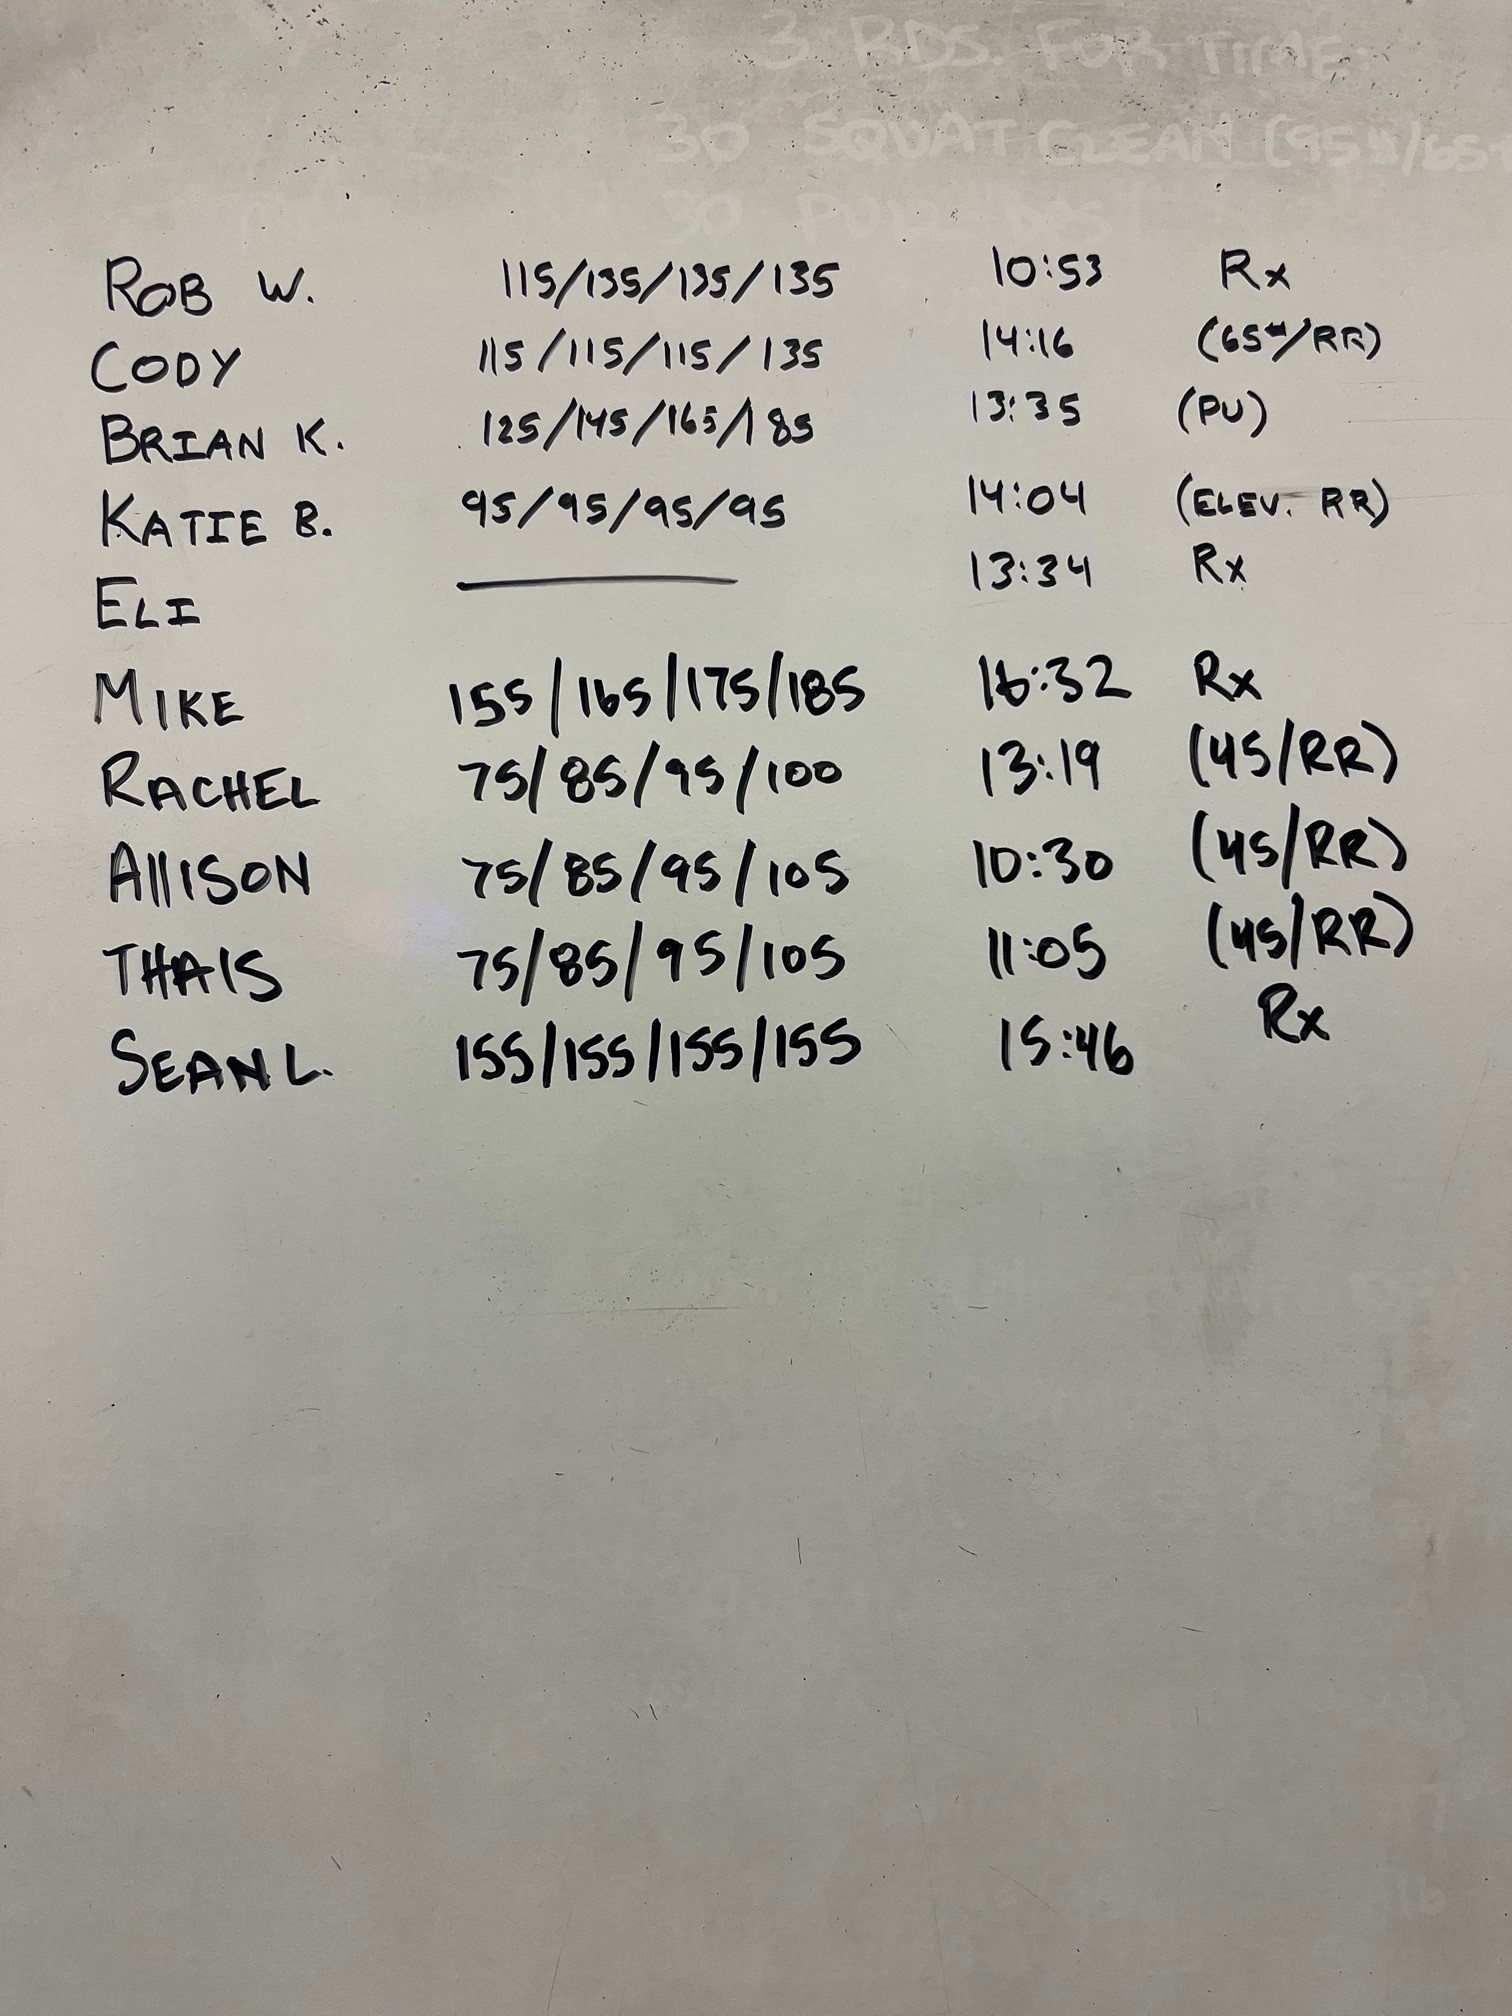 3 RDS. FOR TIME
30 SQUAT CLEAN (95#/65
30 PULL-UPS
ROB W. 115/135/135/135 10:53 Rx
CODY 115/115/115/135 14:16 (65#/RR)
BRIAN K. 125/145/165/185 13:35 (PU)
KATIE B. 95/95/95/95 14:04 (ELEV. RR)
ELI 13:34 Rx
MIKE 155/165/175/185 16:32 Rx
RACHEL 75/85/95/100 13:19 (45/RR)
AllISON 75/85/95/105 10:30 (45/RR)
THAIS 75/85/95/105 11:05 (45/RR)
SEAN L. 155/155/155/155 15:46 Rx